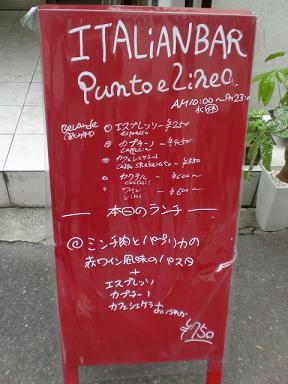 ITALiANBAR
Punto e Linea
AM10:00〜PM23:00
水㊡
Bevande
(飲み物)
エスプレッソー ¥250
espresso
カプチーノ ¥450
カフェシェケラート ¥550
caffe shekerato
カクテル ¥600〜
cocktail
ワイン ¥600〜
vino
本日のランチ
@ミンチ肉とパプリカの
赤ワイン風味のパスタ
+
エスプレッソ
カプチーノ
カフェシェケラート
¥750